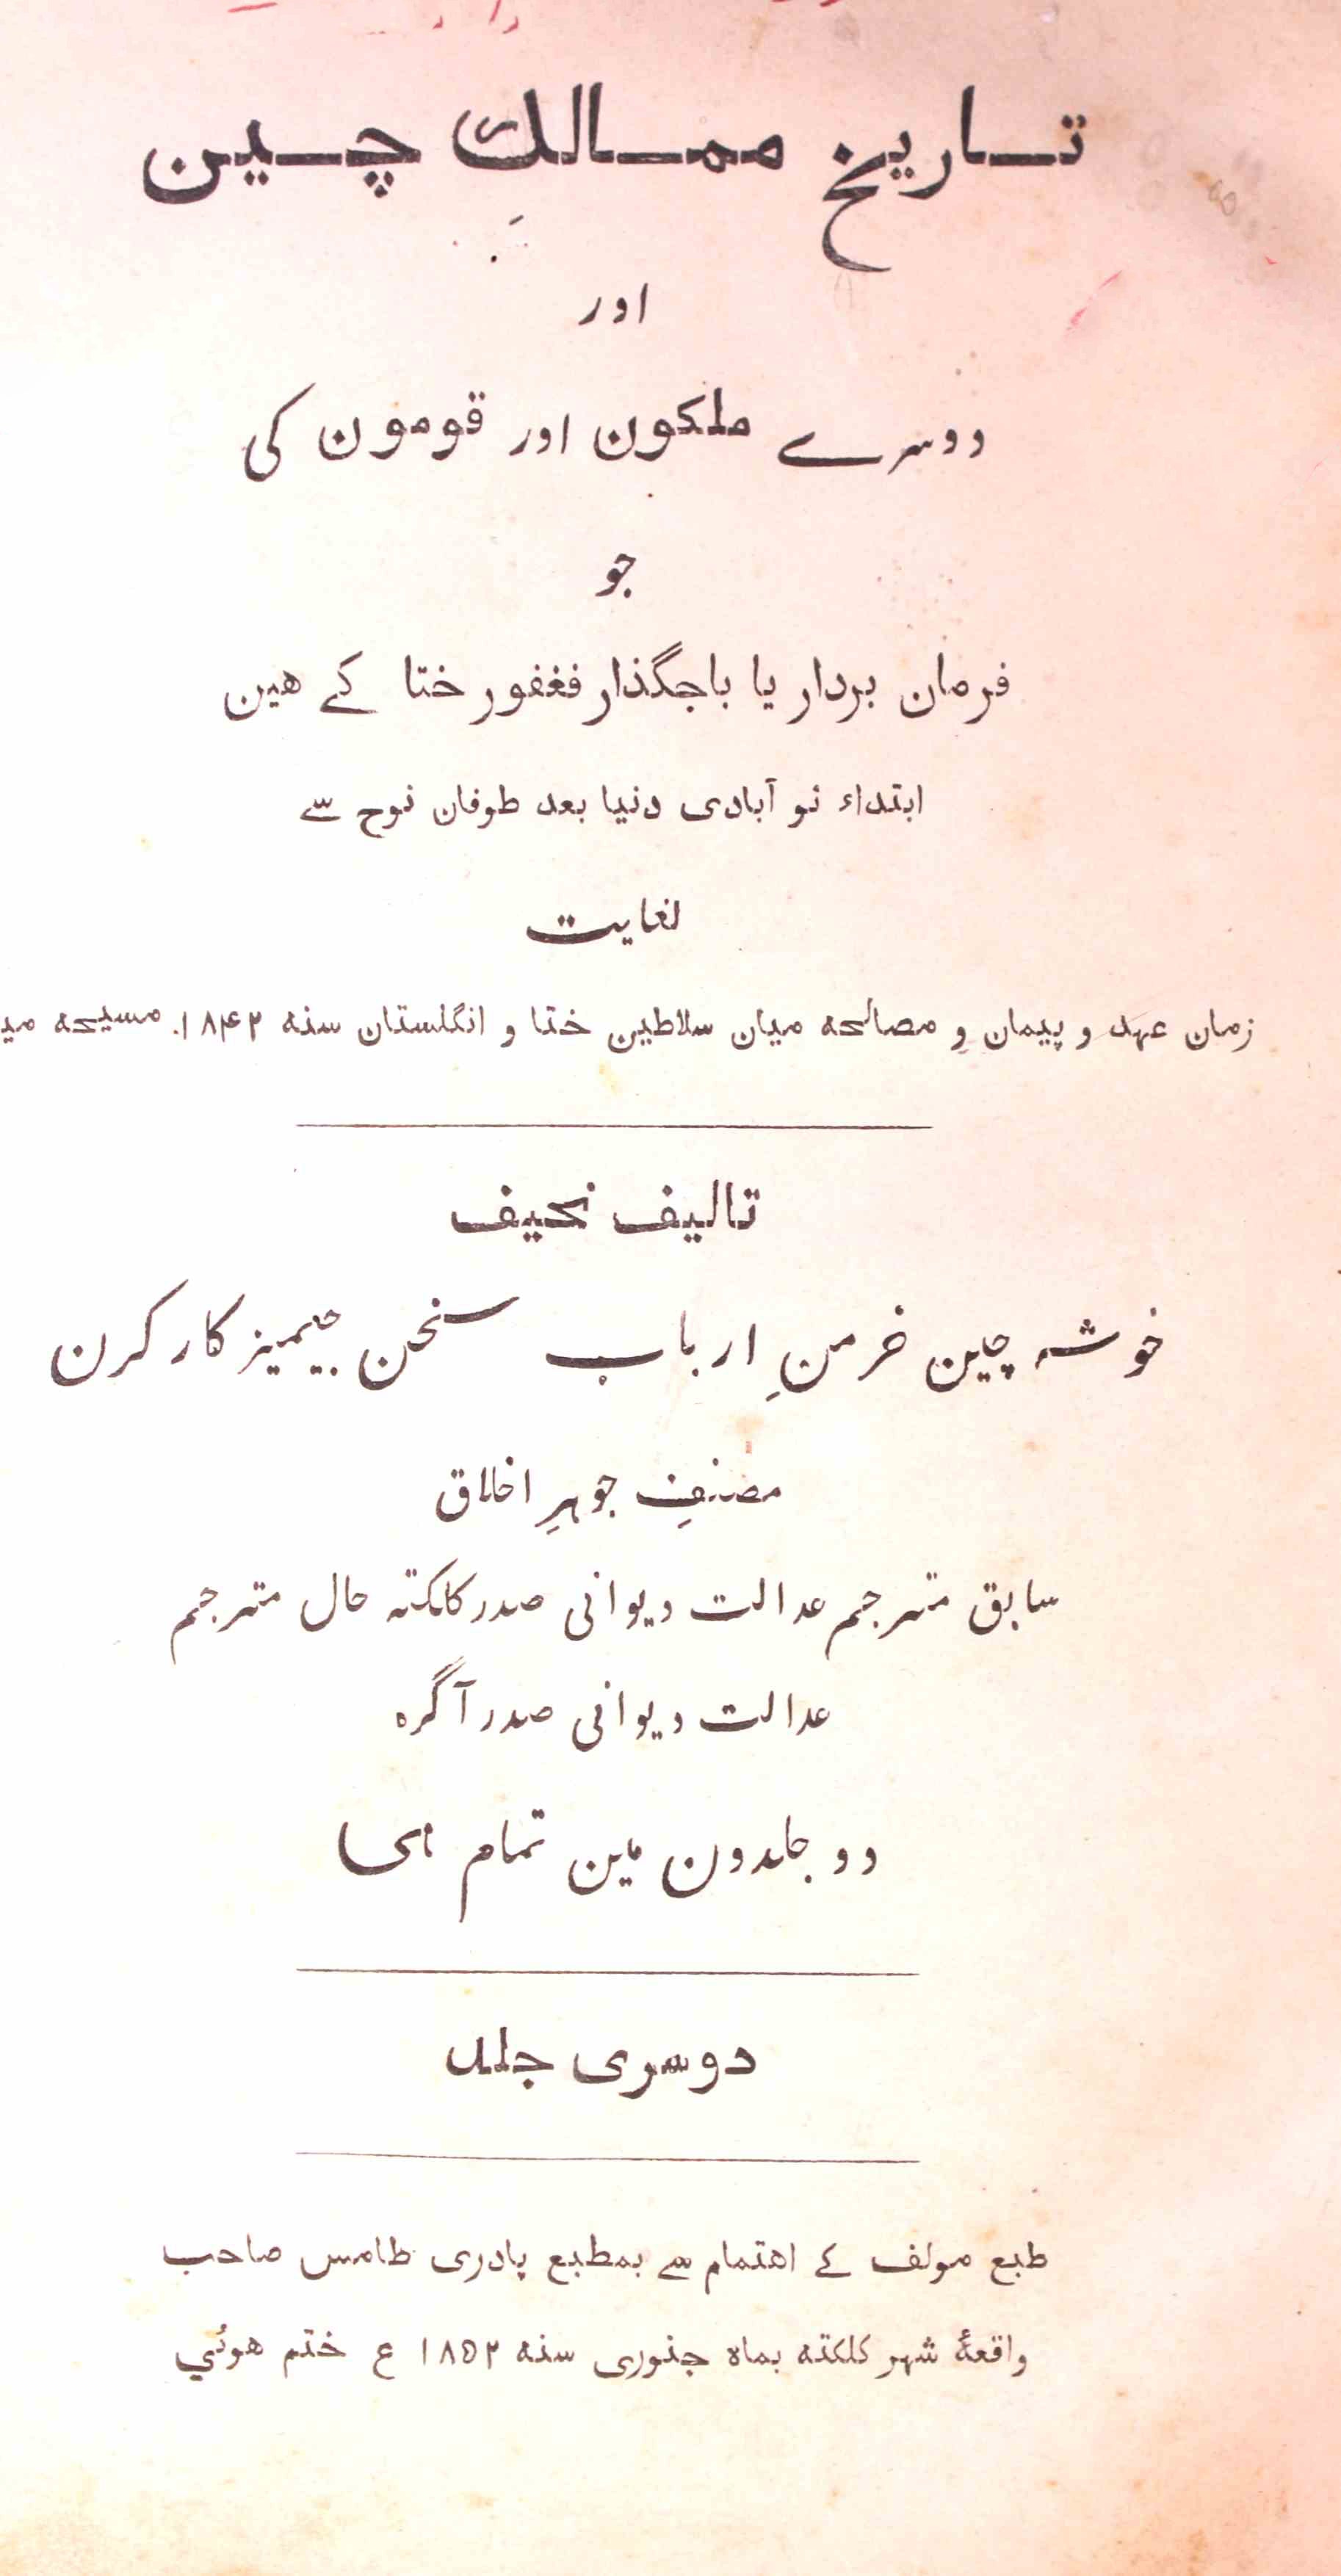 تاریخ ممالکِ چین
اور
دوسرے ملکون اور قومون کی
جو
فرمان بردار یا باجگذار فغفور ختا کے هین
ابتداء نو آبادی دنیا بعد طوفان نوح سے
لغایت
زمان عہد و پیمان و مصالحه میان سلاطین ختا و انگلستان سنه ۱۸۴۲ مسیحیه
تالیف نحیف
خوشہ چین خرمنِ ارباب سخن جیمیز کارکرن
مصنفِ جوہرِ اخلاق
سابق مترجم عدالت دیوانی صدر کلکتہ حال مترجم
عدالت دیوانی صدر آگرہ
دو جلدون مین تمام
دوسری جلد
طبع مولف کے اهتمام سے بمطبع پادری طامس صاحب
واقعۂ شہر کلکته بماه جنوری سنه ۱۸۵۲ ع ختم هوئي